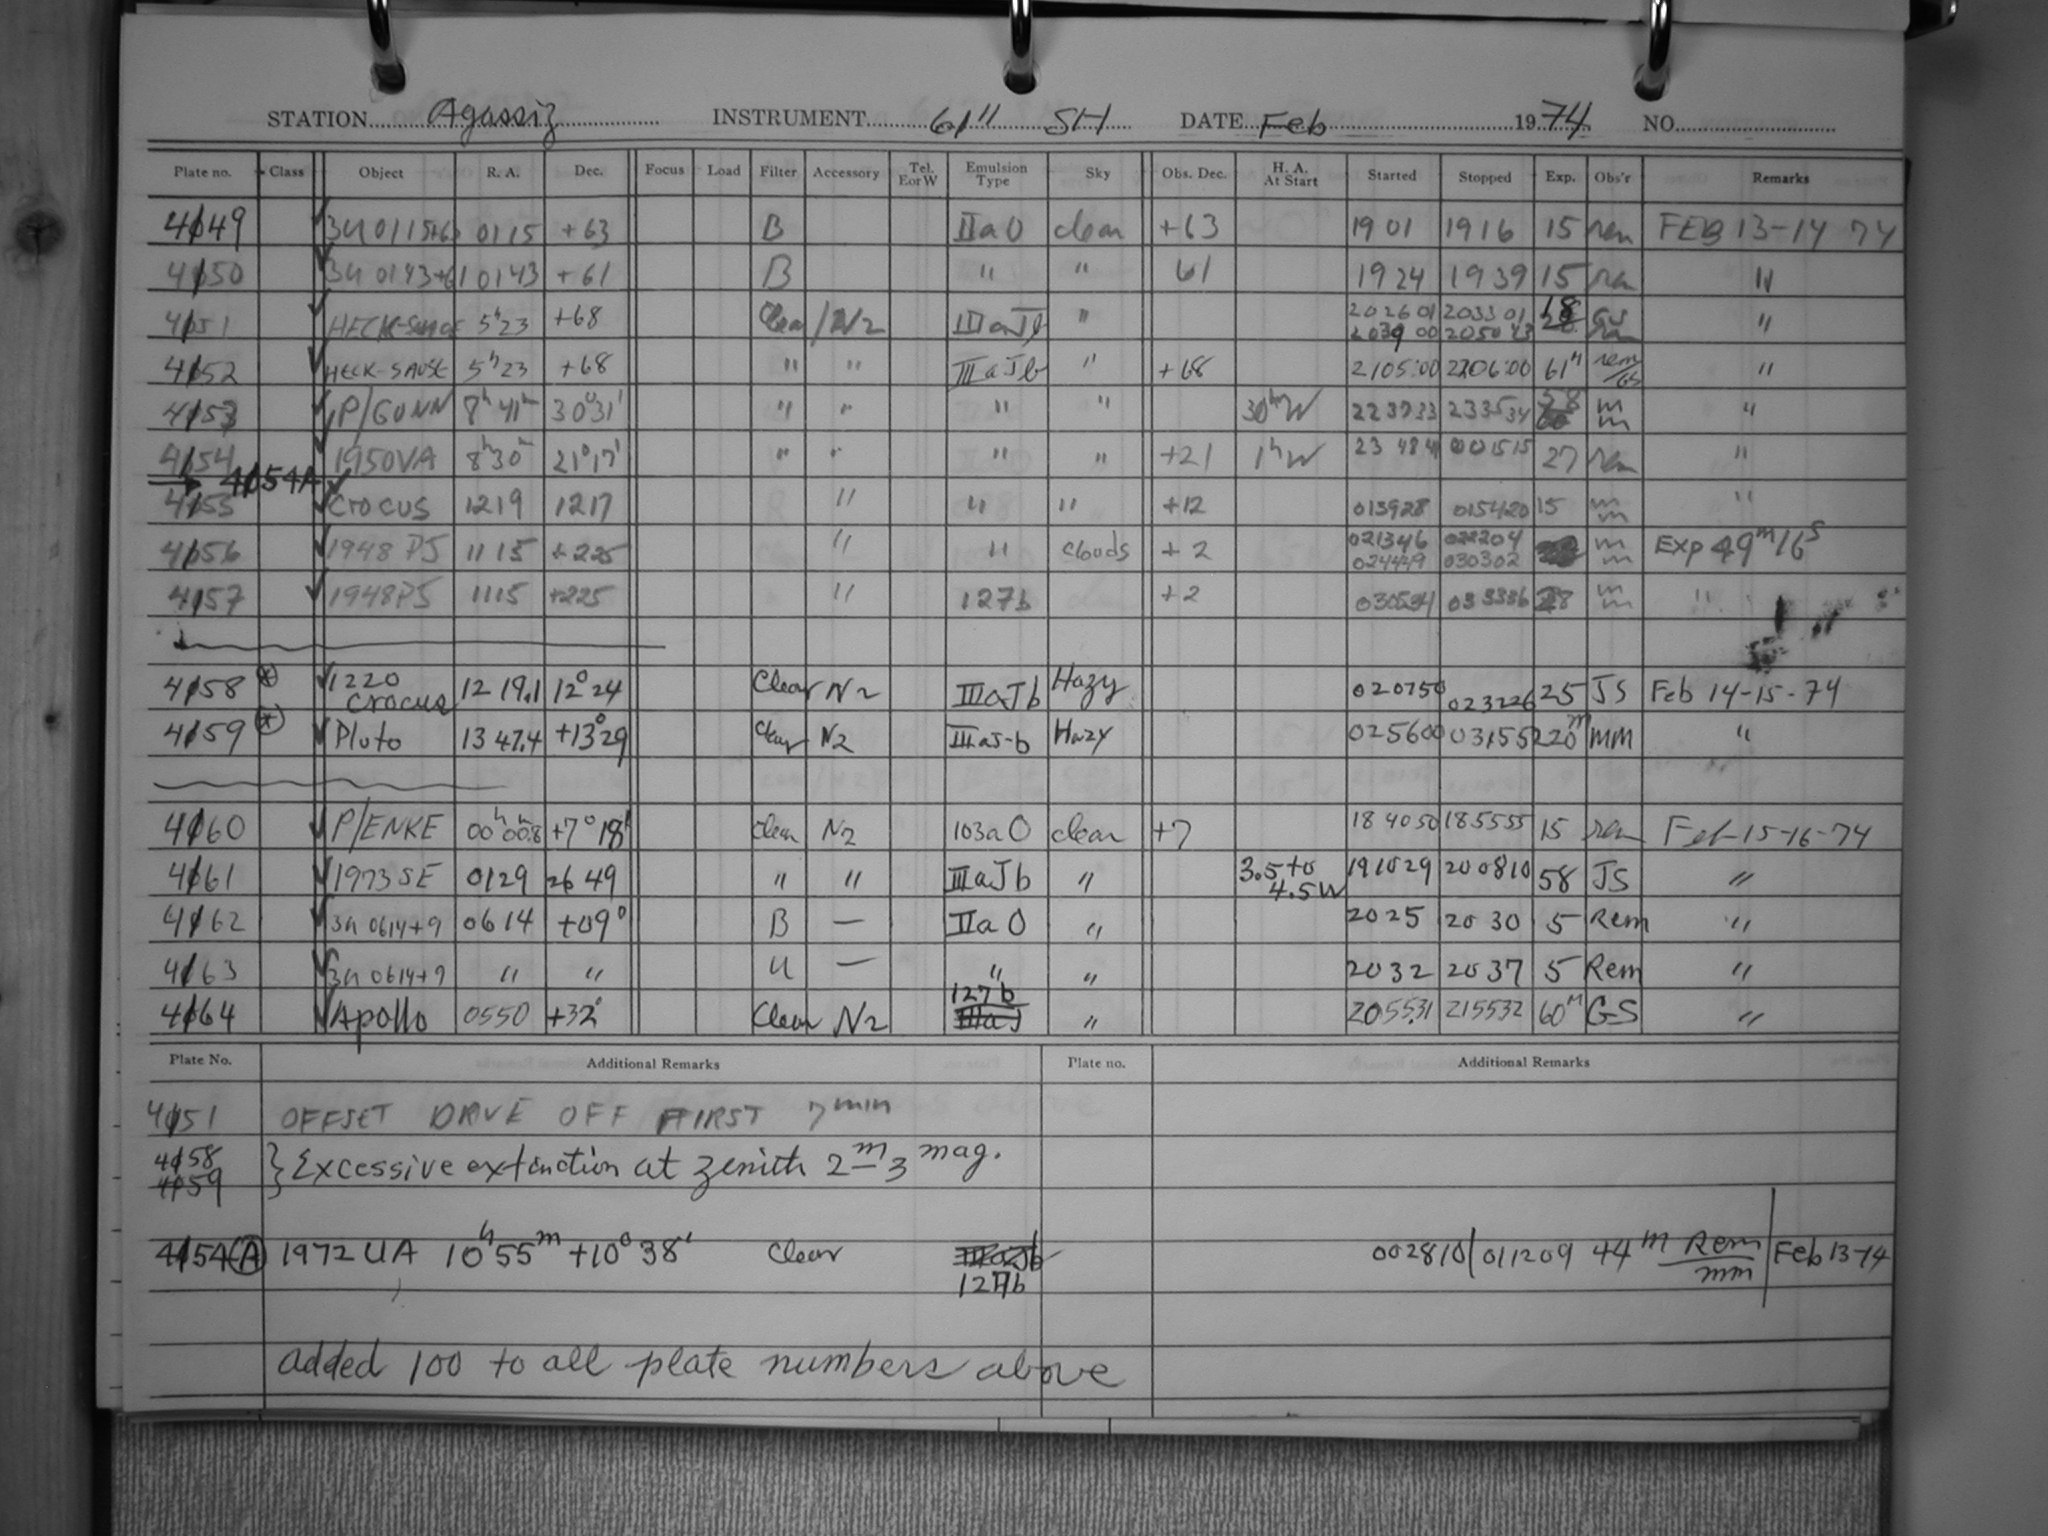 STATION Agassiz INSTRUMENT 61" SH DATE Feb 1974 NO.
Plate no. Class Object R. A. Dec. Focus Load Filter Accessory Tel. E or W Emulsion Type Sky Obs. Dec. H. A. At Start Started Stopped Exp. Obs'r Remarks
4149 3U 0115+63 0115 +63 B IIaO clear +63 1901 1916 15 rem FEB 13-14 74
4150 3U 0143+61 0143 +61 B " " 61 1924 1939 15 rem "
4151 HECK-SAUSE 5h23 +68 Clear / N2 IIIaJb " 202601 203301 18 GS "
203900 205043 rem
4152 HECK-SAUSE 5h23 +68 " " IIIaJb " +68 2105:00 2206:00 61m rem/GS "
4153 P/GUNN 8h 41m 30°31' " " " " 30m W 223733 233534 58 mm "
4154 1950VA 8h30m 21°17' " " " " +21 1h W 23 48 41 001515 27 rem "
→ 4154A
4155 Crocus 1219 1217 " " " +12 013928 015420 15 mm "
4156 1948 PJ 1115 +225 " " clouds +2 021346 022204 mm Exp 49m16s
024449 030302
4157 1948PJ 1115 +225 " 127b +2 030534 033336 28 mm "
4158 * 1220 Crocus 12 19.1 12°24 Clear N2 IIIaJb Hazy 020750 023226 25 JS Feb 14-15-74
4159 * Pluto 13 47.4 +13°29 Clear N2 IIIaJ-b Hazy 025600 031552 20m MM "
4160 P/ENKE 00h 00m.8 +7°18' Clear N2 103aO clear +7 184050 185555 15 rem Feb-15-16-74
4161 1973SE 0129 26 49 " " IIIaJb " 3.5 to 4.5W 191029 200810 58 JS "
4162 3U 0614+9 0614 +09° B — IIaO " 2025 2030 5 Rem "
4163 3U 0614+9 " " U — " " 2032 2037 5 Rem "
4164 Apollo 0550 +32° Clear N2 127b IIIaJ " 205531 215532 60m GS "
Plate No. Additional Remarks Plate no. Additional Remarks
4151 OFFSET DRIVE OFF FIRST 7min
4158
4159 } Excessive extinction at zenith 2m-3 mag.
4154(A) 1972 UA 10h55m +10°38' Clear IIIaJb 127b 002810 / 011209 44m Rem/mm Feb 13-14
added 100 to all plate numbers above